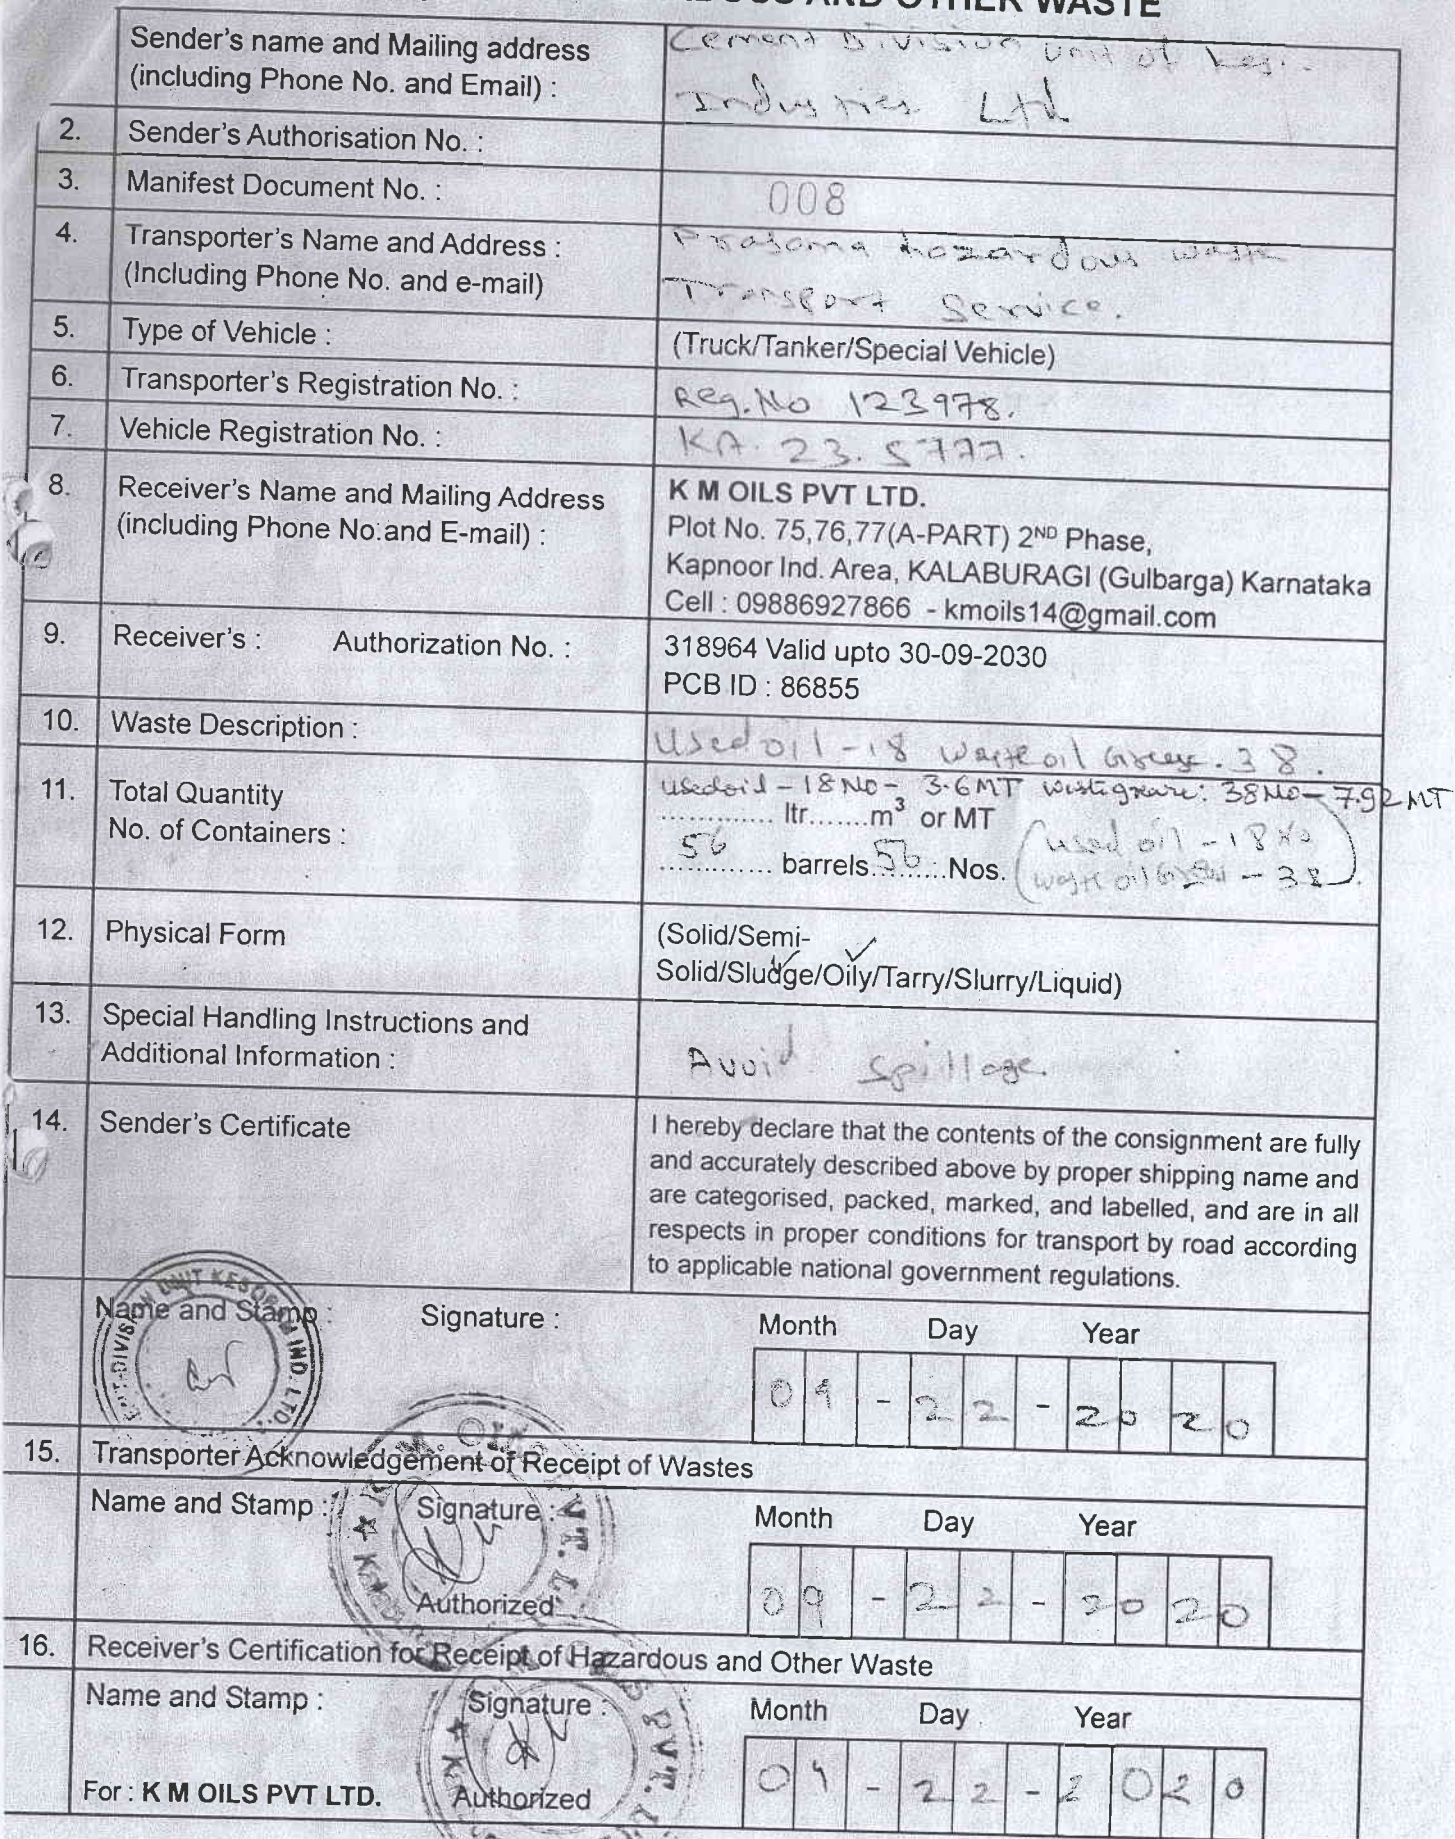 AND OTHER WASTE
Sender's name and Mailing address
(including Phone No. and Email) :
Cement Division Unit of Kesi..
Industries Ltd
2. Sender's Authorisation No. :
3. Manifest Document No. : 008
4. Transporter's Name and Address :
(Including Phone No. and e-mail)
Prasanna hazardous waste
Transport Service.
5. Type of Vehicle : (Truck/Tanker/Special Vehicle)
6. Transporter's Registration No. : Reg.No 123978.
7. Vehicle Registration No. : KA. 23. 5777.
8. Receiver's Name and Mailing Address
(including Phone No.and E-mail) :
K M OILS PVT LTD.
Plot No. 75,76,77(A-PART) 2ND Phase,
Kapnoor Ind. Area, KALABURAGI (Gulbarga) Karnataka
Cell : 09886927866 - kmoils14@gmail.com
9. Receiver's : Authorization No. : 318964 Valid upto 30-09-2030
PCB ID : 86855
10. Waste Description : Used oil - 18 Waste oil Grease. 38.
11. Total Quantity
No. of Containers :
usedoil - 18 No - 3.6MT wastegrease: 38No - 7.92 MT
............. ltr.......m³ or MT
56 barrels 56 Nos. (used oil - 18 No
waste oil Grease - 38).
12. Physical Form (Solid/Semi-
Solid/Sludge/Oily/Tarry/Slurry/Liquid)
13. Special Handling Instructions and
Additional Information :
Avoid Spillage.
14. Sender's Certificate
I hereby declare that the contents of the consignment are fully
and accurately described above by proper shipping name and
are categorised, packed, marked, and labelled, and are in all
respects in proper conditions for transport by road according
to applicable national government regulations.
Name and Stamp : Signature : Month Day Year
DIVISION UNIT KESORAM IND. LTD.
09 - 22 - 2020
15. Transporter Acknowledgement of Receipt of Wastes
Name and Stamp : Signature : Month Day Year
Authorized
09 - 22 - 2020
16. Receiver's Certification for Receipt of Hazardous and Other Waste
Name and Stamp : Signature : Month Day Year
For : K M OILS PVT LTD. Authorized
09 - 22 - 2020